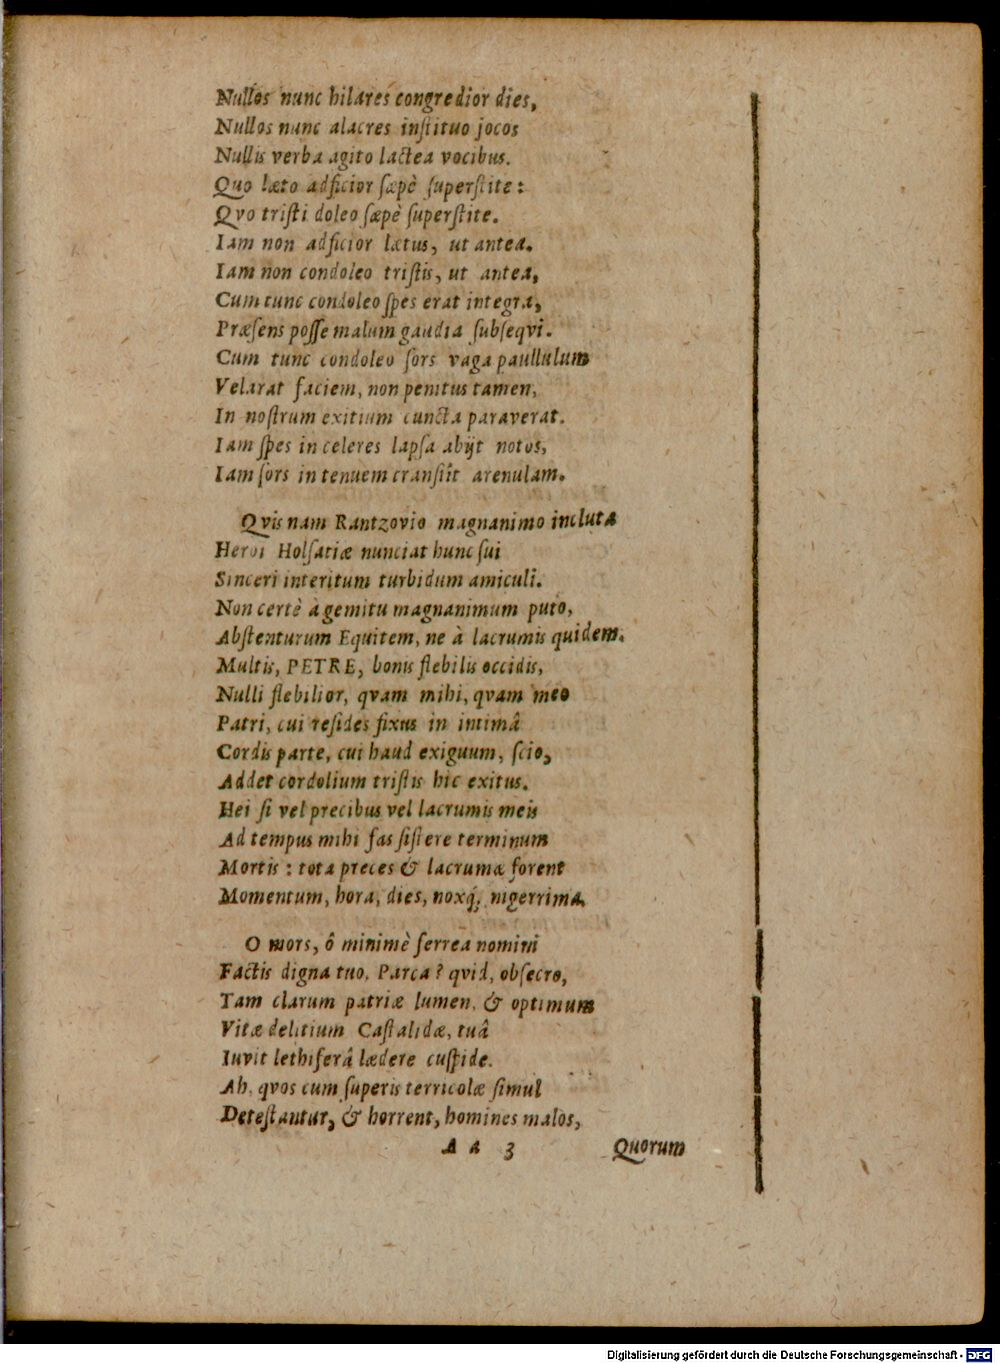 Nullos nunc hilares congredior dies,
Nullos nunc alacres instituo jocos
Nullis verba agito lactea vocibus.
Quo læto adficior sæpè superstite:
Qvo tristi doleo sæpè superstite.
Iam non adficior lætus, ut antea.
Iam non condoleo tristis, ut antea,
Cum tunc condoleo spes erat integra,
Præsens posse malum gaudia subseqvi.
Cum tunc condoleo sors vaga paullulum
Velarat faciem, non penitus tamen,
In nostrum exitium cuncta paraverat.
Iam spes in celeres lapsa abijt notos,
Iam sors in tenuem transiit arenulam.
Qvisnam Rantzovio magnanimo incluta
Heroi Holsatiæ nunciat hunc sui
Sinceri interitum turbidum amiculi.
Non certè à gemitu magnanimum puto,
Abstenturum Equitem, ne à lacrumis quidem.
Multis, PETRE, bonis flebilis occidis,
Nulli flebilior, qvam mihi, qvam meo
Patri, cui resides fixus in intimâ
Cordis parte, cui haud exiguum, scio,
Addet cordolium tristis hic exitus.
Hei si vel precibus vel lacrumis meis
Ad tempus mihi fas sistere terminum
Mortis: tota preces & lacrumæ forent
Momentum, hora, dies, noxq́; nigerrima.
O mors, ô minimè ferrea nomini
Factis digna tuo, Parca? qvid, obsecro,
Tam clarum patriæ lumen, & optimum
Vitæ delitium Castalidæ, tuâ
Iuvit lethiferâ lædere cuspide.
Ah, qvos cum superis terricolæ simul
Detestantur, & horrent, homines malos,
A a 3 Quorum
Digitalisierung gefördert durch die Deutsche Forschungsgemeinschaft - DFG